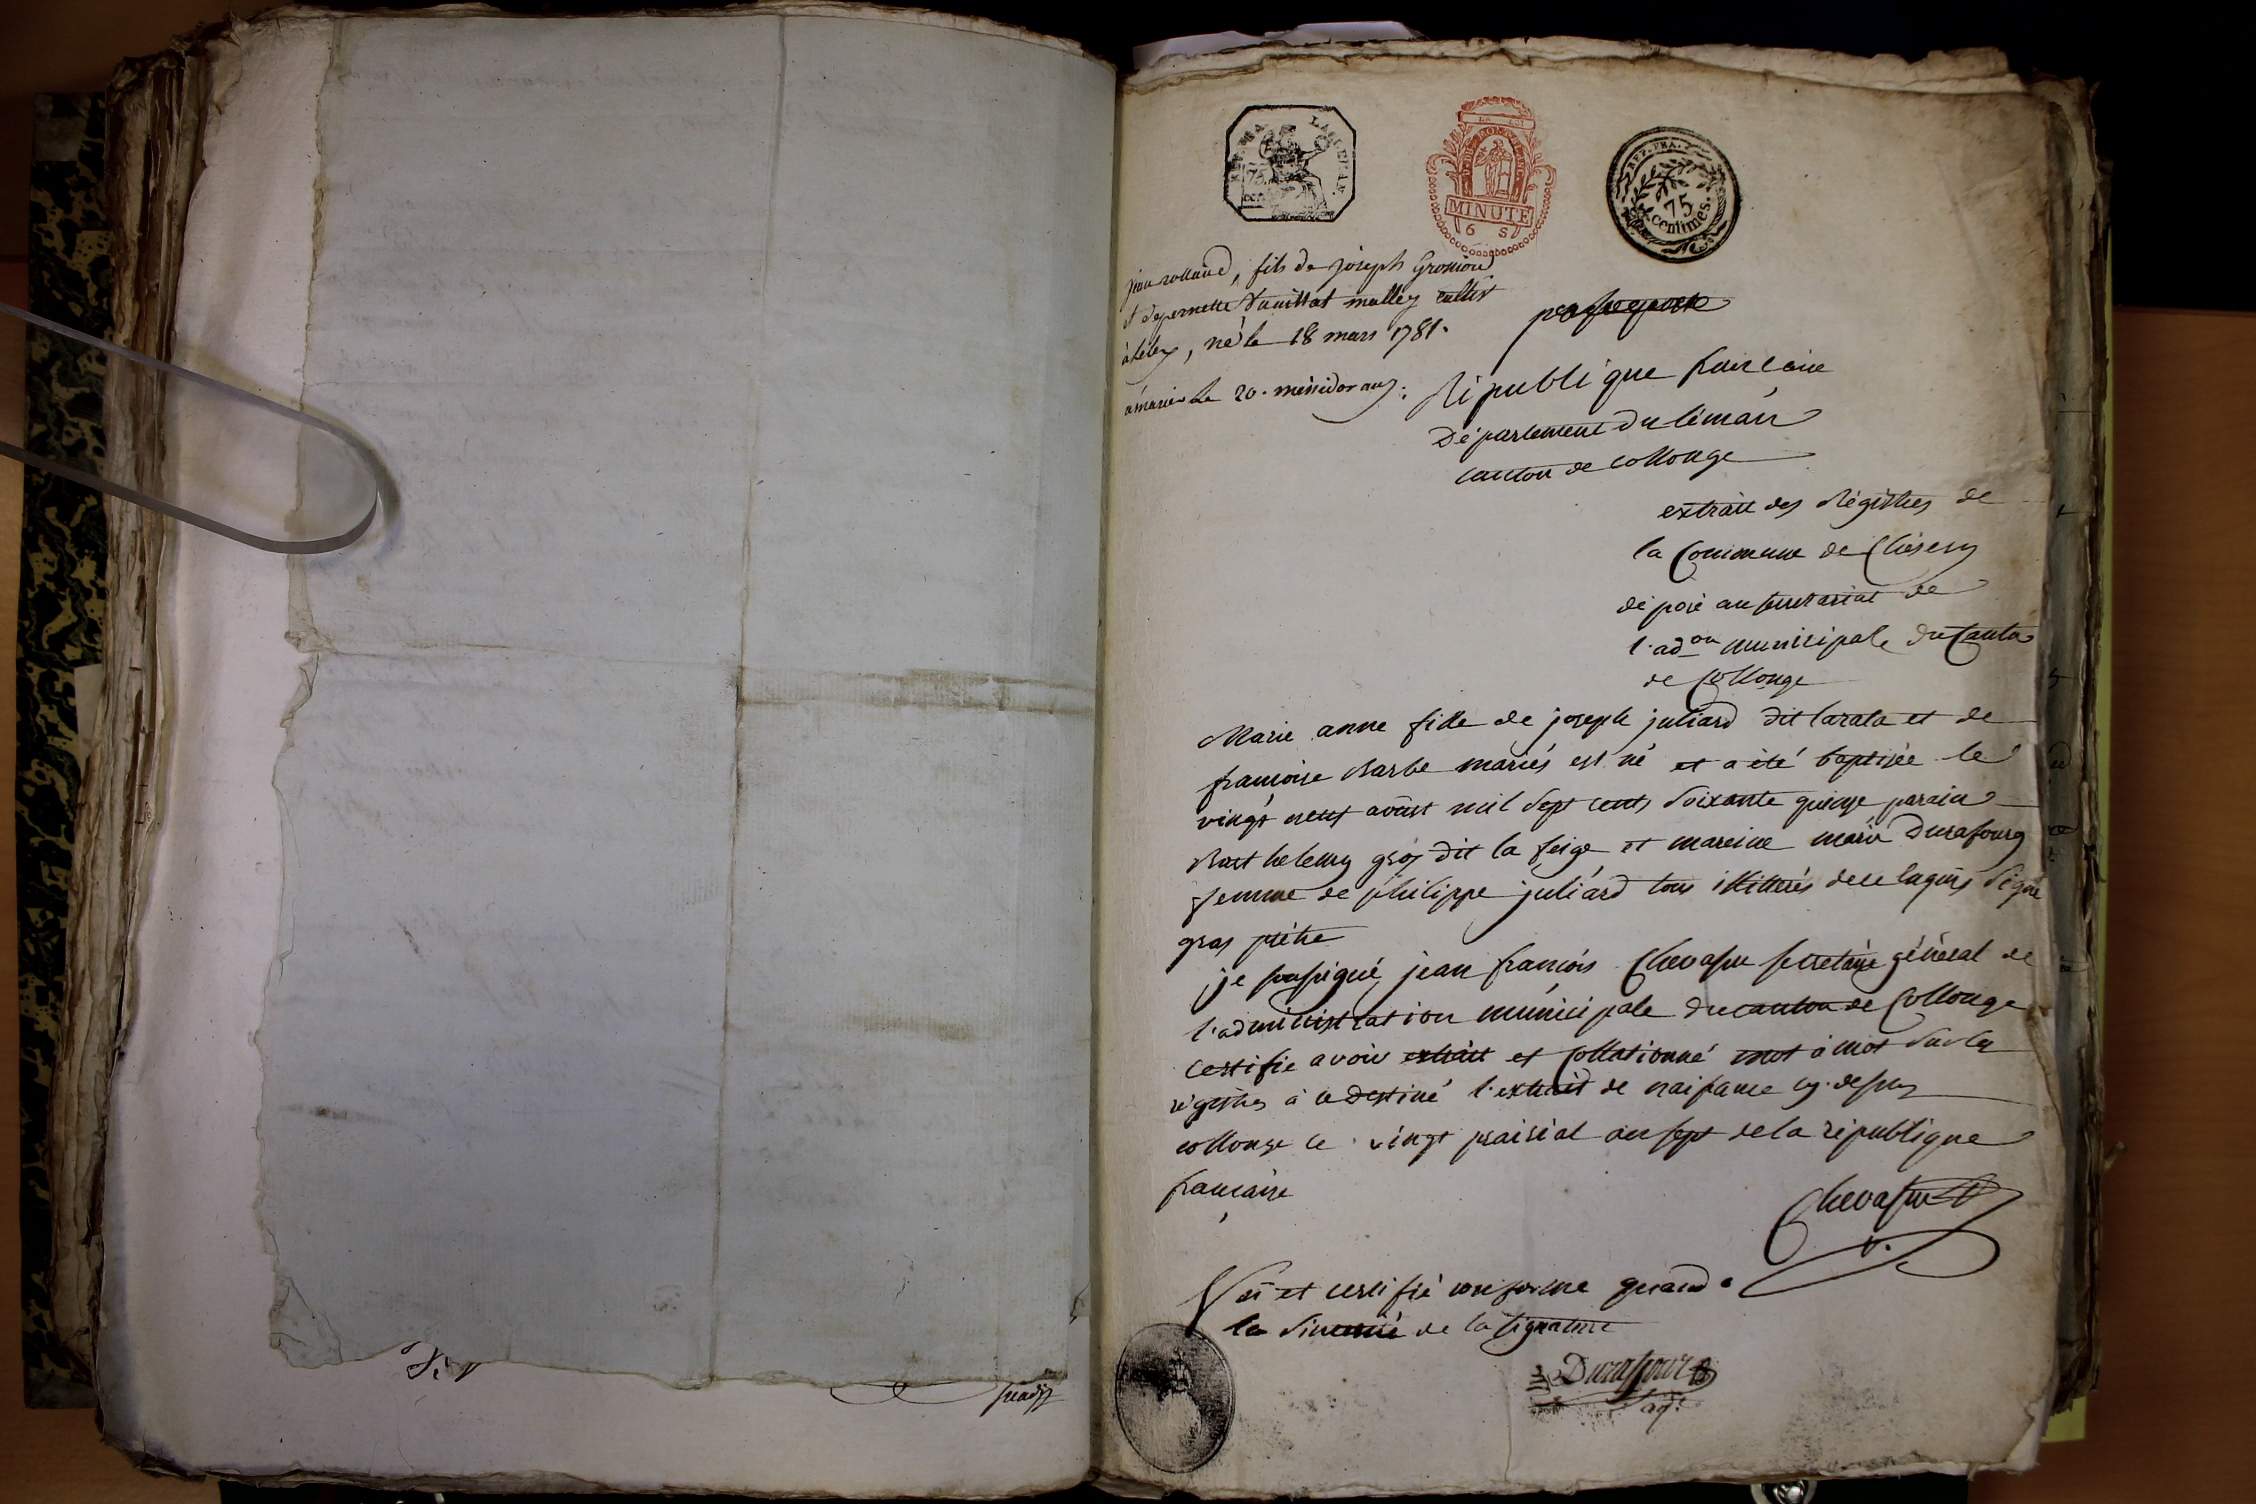 REP. FRA.
75
centimes.
LA LOI
MINUTE
6 S
REP. FRA.
75
centimes.
jean rolland, fils de joseph Grossiord
et de pernette mulley cultiv
à lélex, né le 18 mars 1781.
à marier le 20. messidor an 7.
passeport
République francaise
Département du léman
Canton de Collonge
extrait des Régistres de
la Commune de Chésery
déposé au secretariat de
l'ad.on municipale du Canton
de Collonge
Marie anne fille de joseph juliard dit larata et de
francoise Barbe mariés est né et a été baptisée le
vingt neuf aoust mil sept cents soixante quinze parain
Barthelemy gros dit la feige et mareine marie Durafourg
femme de philippe juliard tous illitterés de ce laquis signé
gras prétre
je soussigné jean francois Chevassu secretaire général de
l'administration municipale du canton de Collonge
certifie avoir extrait et Collationné mot à mot sur les
régistres à ce destiné l'extrait de naissance cy-dessus
collonge ce vingt prairial an sept de la république
francaise
Chevassu
Vû et certifié conforme quand a
la sincerité de la signature
Duraffour
ag.t